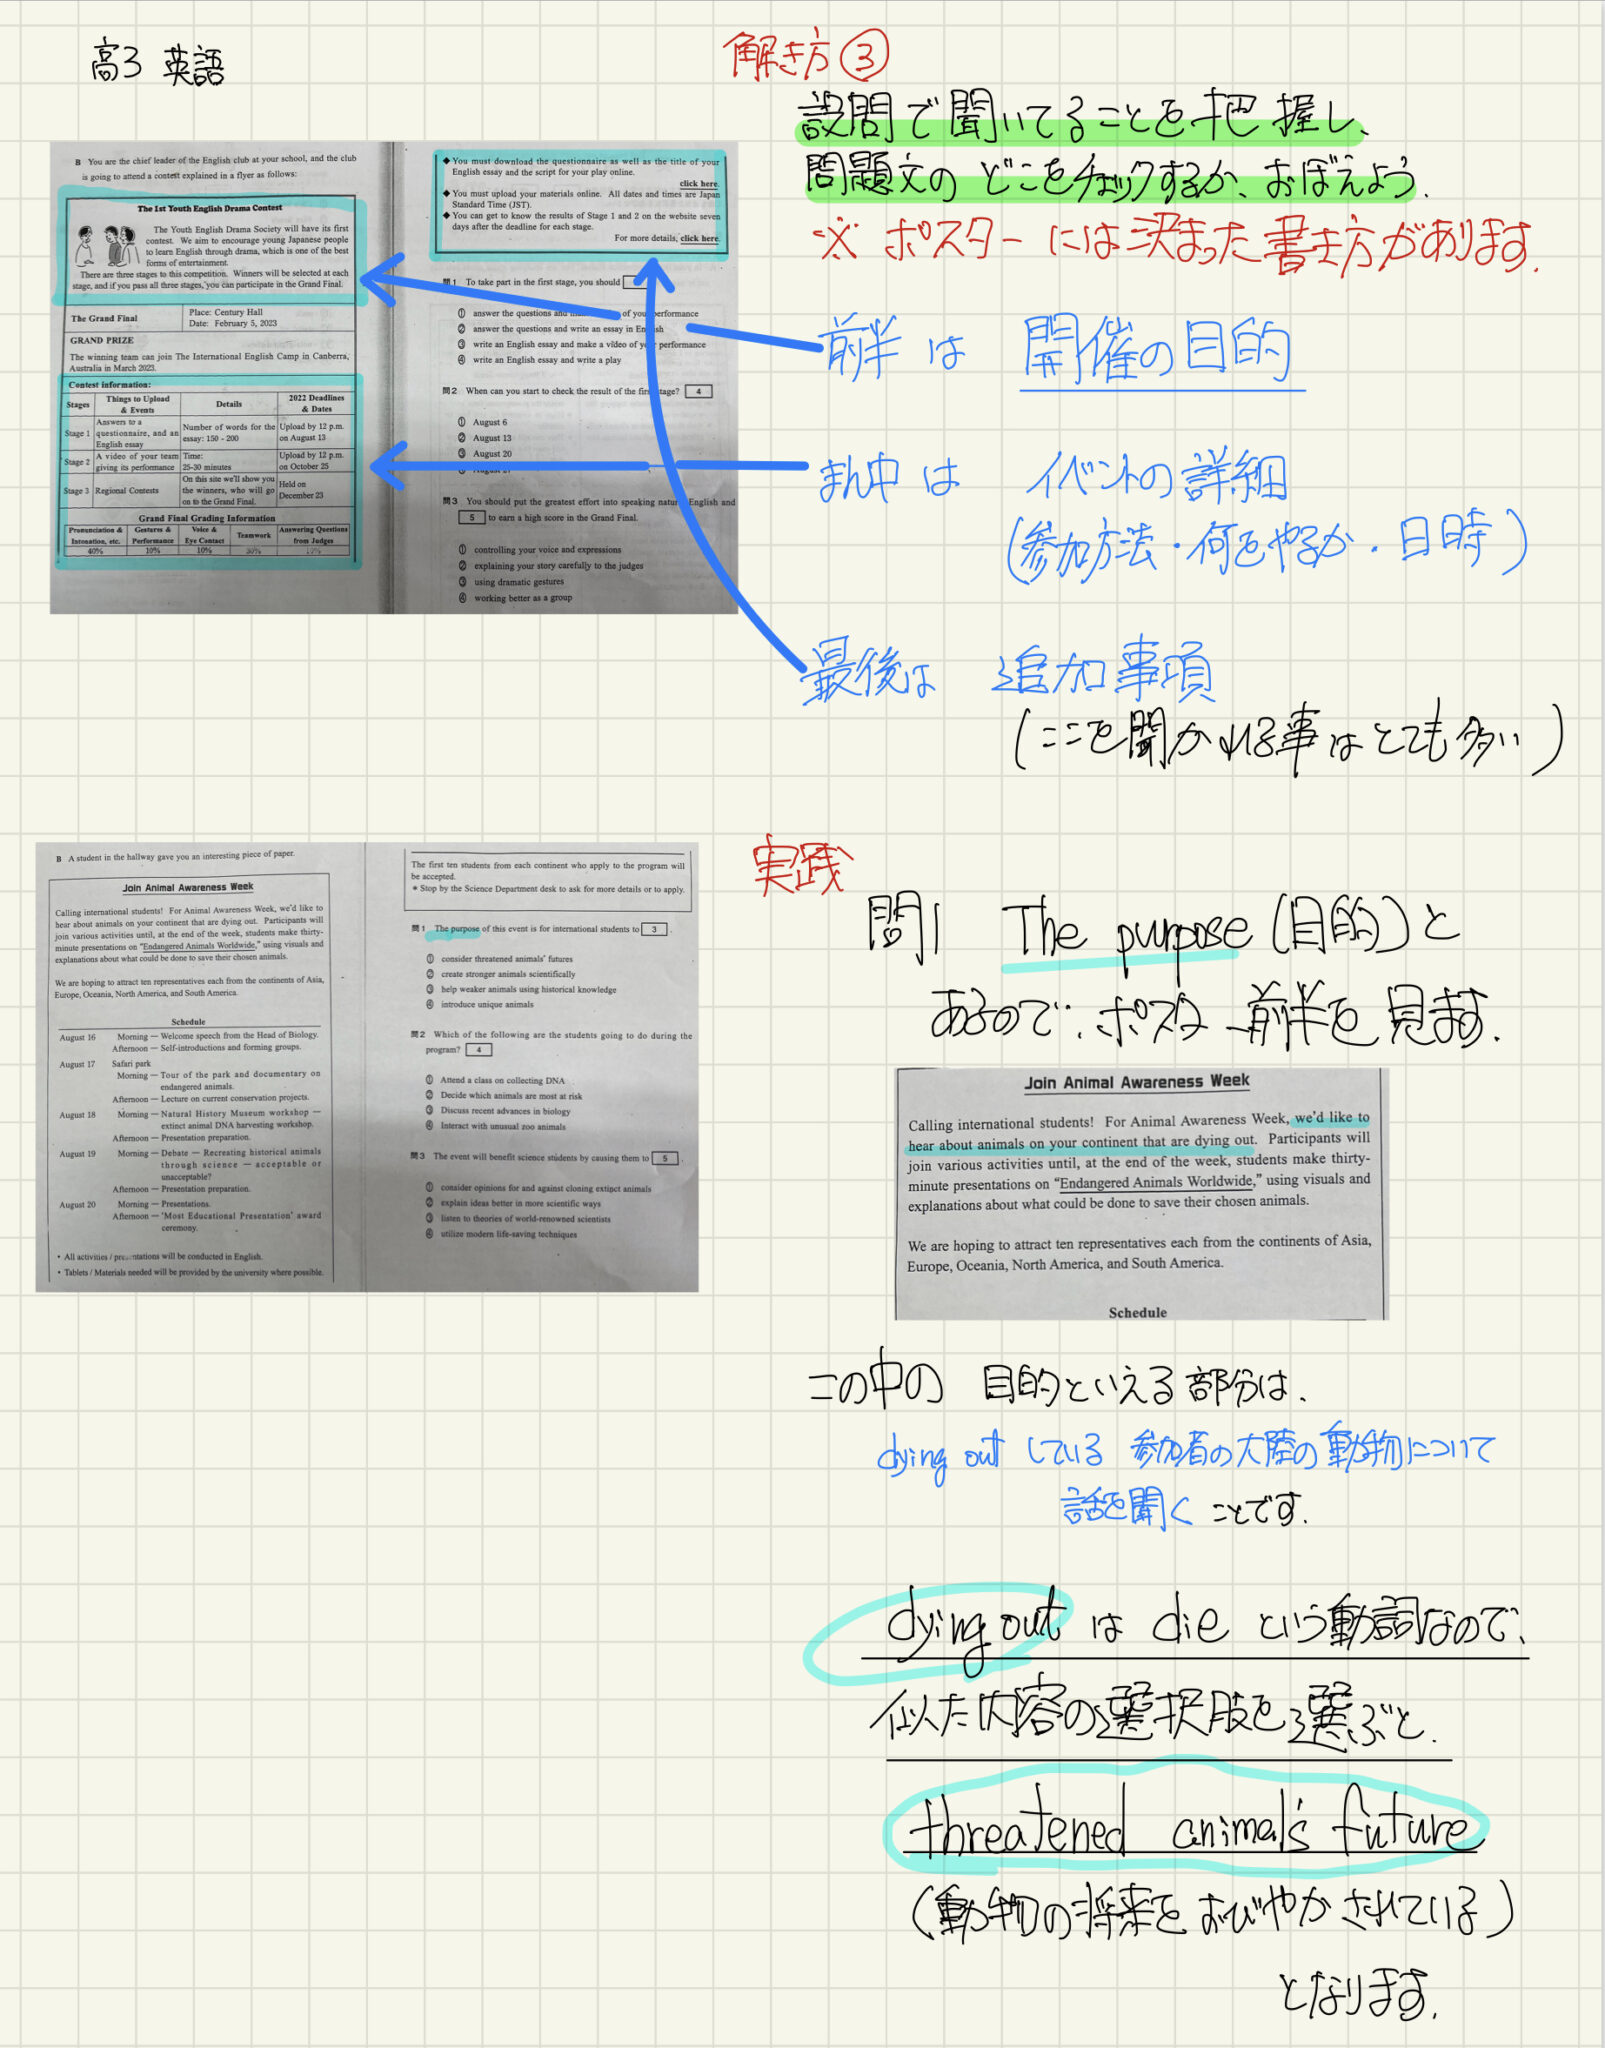 高3 英語
解き方③
設問で聞いてることを把握し、
問題文のどこをチェックするか、おぼえよう.
※ ポスターには決まった書き方があります.
前半は 開催の目的
まん中は イベントの詳細
(参加方法・何をやるか・日時)
最後は 追加事項
(ここを聞かれる事はとても多い)
B You are the chief leader of the English club at your school, and the club
is going to attend a contest explained in a flyer as follows:
The 1st Youth English Drama Contest
The Youth English Drama Society will have its first
contest. We aim to encourage young Japanese people
to learn English through drama, which is one of the best
forms of entertainment.
There are three stages to this competition. Winners will be selected at each
stage, and if you pass all three stages, you can participate in the Grand Final.
The Grand Final
Place: Century Hall
Date: February 5, 2023
GRAND PRIZE
The winning team can join The International English Camp in Canberra,
Australia in March 2023.
Contest information:
Stages
Things to Upload
& Events
Details
2022 Deadlines
& Dates
Stage 1
Answers to a
questionnaire, and an
English essay
Number of words for the
essay: 150 - 200
Upload by 12 p.m.
on August 13
Stage 2
A video of your team
giving its performance
Time:
25-30 minutes
Upload by 12 p.m.
on October 25
Stage 3
Regional Contests
On this site we'll show you
the winners, who will go
on to the Grand Final.
Held on
December 23
Grand Final Grading Information
Pronunciation &
Intonation, etc.
Gestures &
Performance
Voice &
Eye Contact
Teamwork
Answering Questions
from Judges
40%
10%
10%
30%
10%
◆ You must download the questionnaire as well as the title of your
English essay and the script for your play online.
click here.
◆ You must upload your materials online. All dates and times are Japan
Standard Time (JST).
◆ You can get to know the results of Stage 1 and 2 on the website seven
days after the deadline for each stage.
For more details, click here.
問1 To take part in the first stage, you should
① answer the questions and of your performance
② answer the questions and write an essay in English
③ write an English essay and make a video of your performance
④ write an English essay and write a play
問2 When can you start to check the result of the first stage? 4
① August 6
② August 13
③ August 20
問3 You should put the greatest effort into speaking natural English and
5 to earn a high score in the Grand Final.
① controlling your voice and expressions
② explaining your story carefully to the judges
③ using dramatic gestures
④ working better as a group
B A student in the hallway gave you an interesting piece of paper.
Join Animal Awareness Week
Calling international students! For Animal Awareness Week, we'd like to
hear about animals on your continent that are dying out. Participants will
join various activities until, at the end of the week, students make thirty-
minute presentations on "Endangered Animals Worldwide," using visuals and
explanations about what could be done to save their chosen animals.
We are hoping to attract ten representatives each from the continents of Asia,
Europe, Oceania, North America, and South America.
Schedule
August 16 Morning — Welcome speech from the Head of Biology.
Afternoon — Self-introductions and forming groups.
August 17 Safari park
Morning — Tour of the park and documentary on
endangered animals.
Afternoon — Lecture on current conservation projects.
August 18 Morning — Natural History Museum workshop —
extinct animal DNA harvesting workshop.
Afternoon — Presentation preparation.
August 19 Morning — Debate — Recreating historical animals
through science — acceptable or
unacceptable?
Afternoon — Presentation preparation.
August 20 Morning — Presentations.
Afternoon — 'Most Educational Presentation' award
ceremony.
• All activities / presentations will be conducted in English.
• Tablets / Materials needed will be provided by the university where possible.
The first ten students from each continent who apply to the program will
be accepted.
* Stop by the Science Department desk to ask for more details or to apply.
問1 The purpose of this event is for international students to 3 .
① consider threatened animals' futures
② create stronger animals scientifically
③ help weaker animals using historical knowledge
④ introduce unique animals
問2 Which of the following are the students going to do during the
program? 4
① Attend a class on collecting DNA
② Decide which animals are most at risk
③ Discuss recent advances in biology
④ Interact with unusual zoo animals
問3 The event will benefit science students by causing them to 5 .
① consider opinions for and against cloning extinct animals
② explain ideas better in more scientific ways
③ listen to theories of world-renowned scientists
④ utilize modern life-saving techniques
実践
問1 The purpose (目的) と
あるので、ポスター前半を見ます.
Join Animal Awareness Week
Calling international students! For Animal Awareness Week, we'd like to
hear about animals on your continent that are dying out. Participants will
join various activities until, at the end of the week, students make thirty-
minute presentations on "Endangered Animals Worldwide," using visuals and
explanations about what could be done to save their chosen animals.
We are hoping to attract ten representatives each from the continents of Asia,
Europe, Oceania, North America, and South America.
Schedule
この中の 目的といえる部分は、
dying out している 参加者の大陸の動物について
話を聞く ことです.
dying out は die という動詞なので、
似た内容の選択肢を選ぶと.
threatened animal's future
(動物の将来をおびやかされている)
となります.